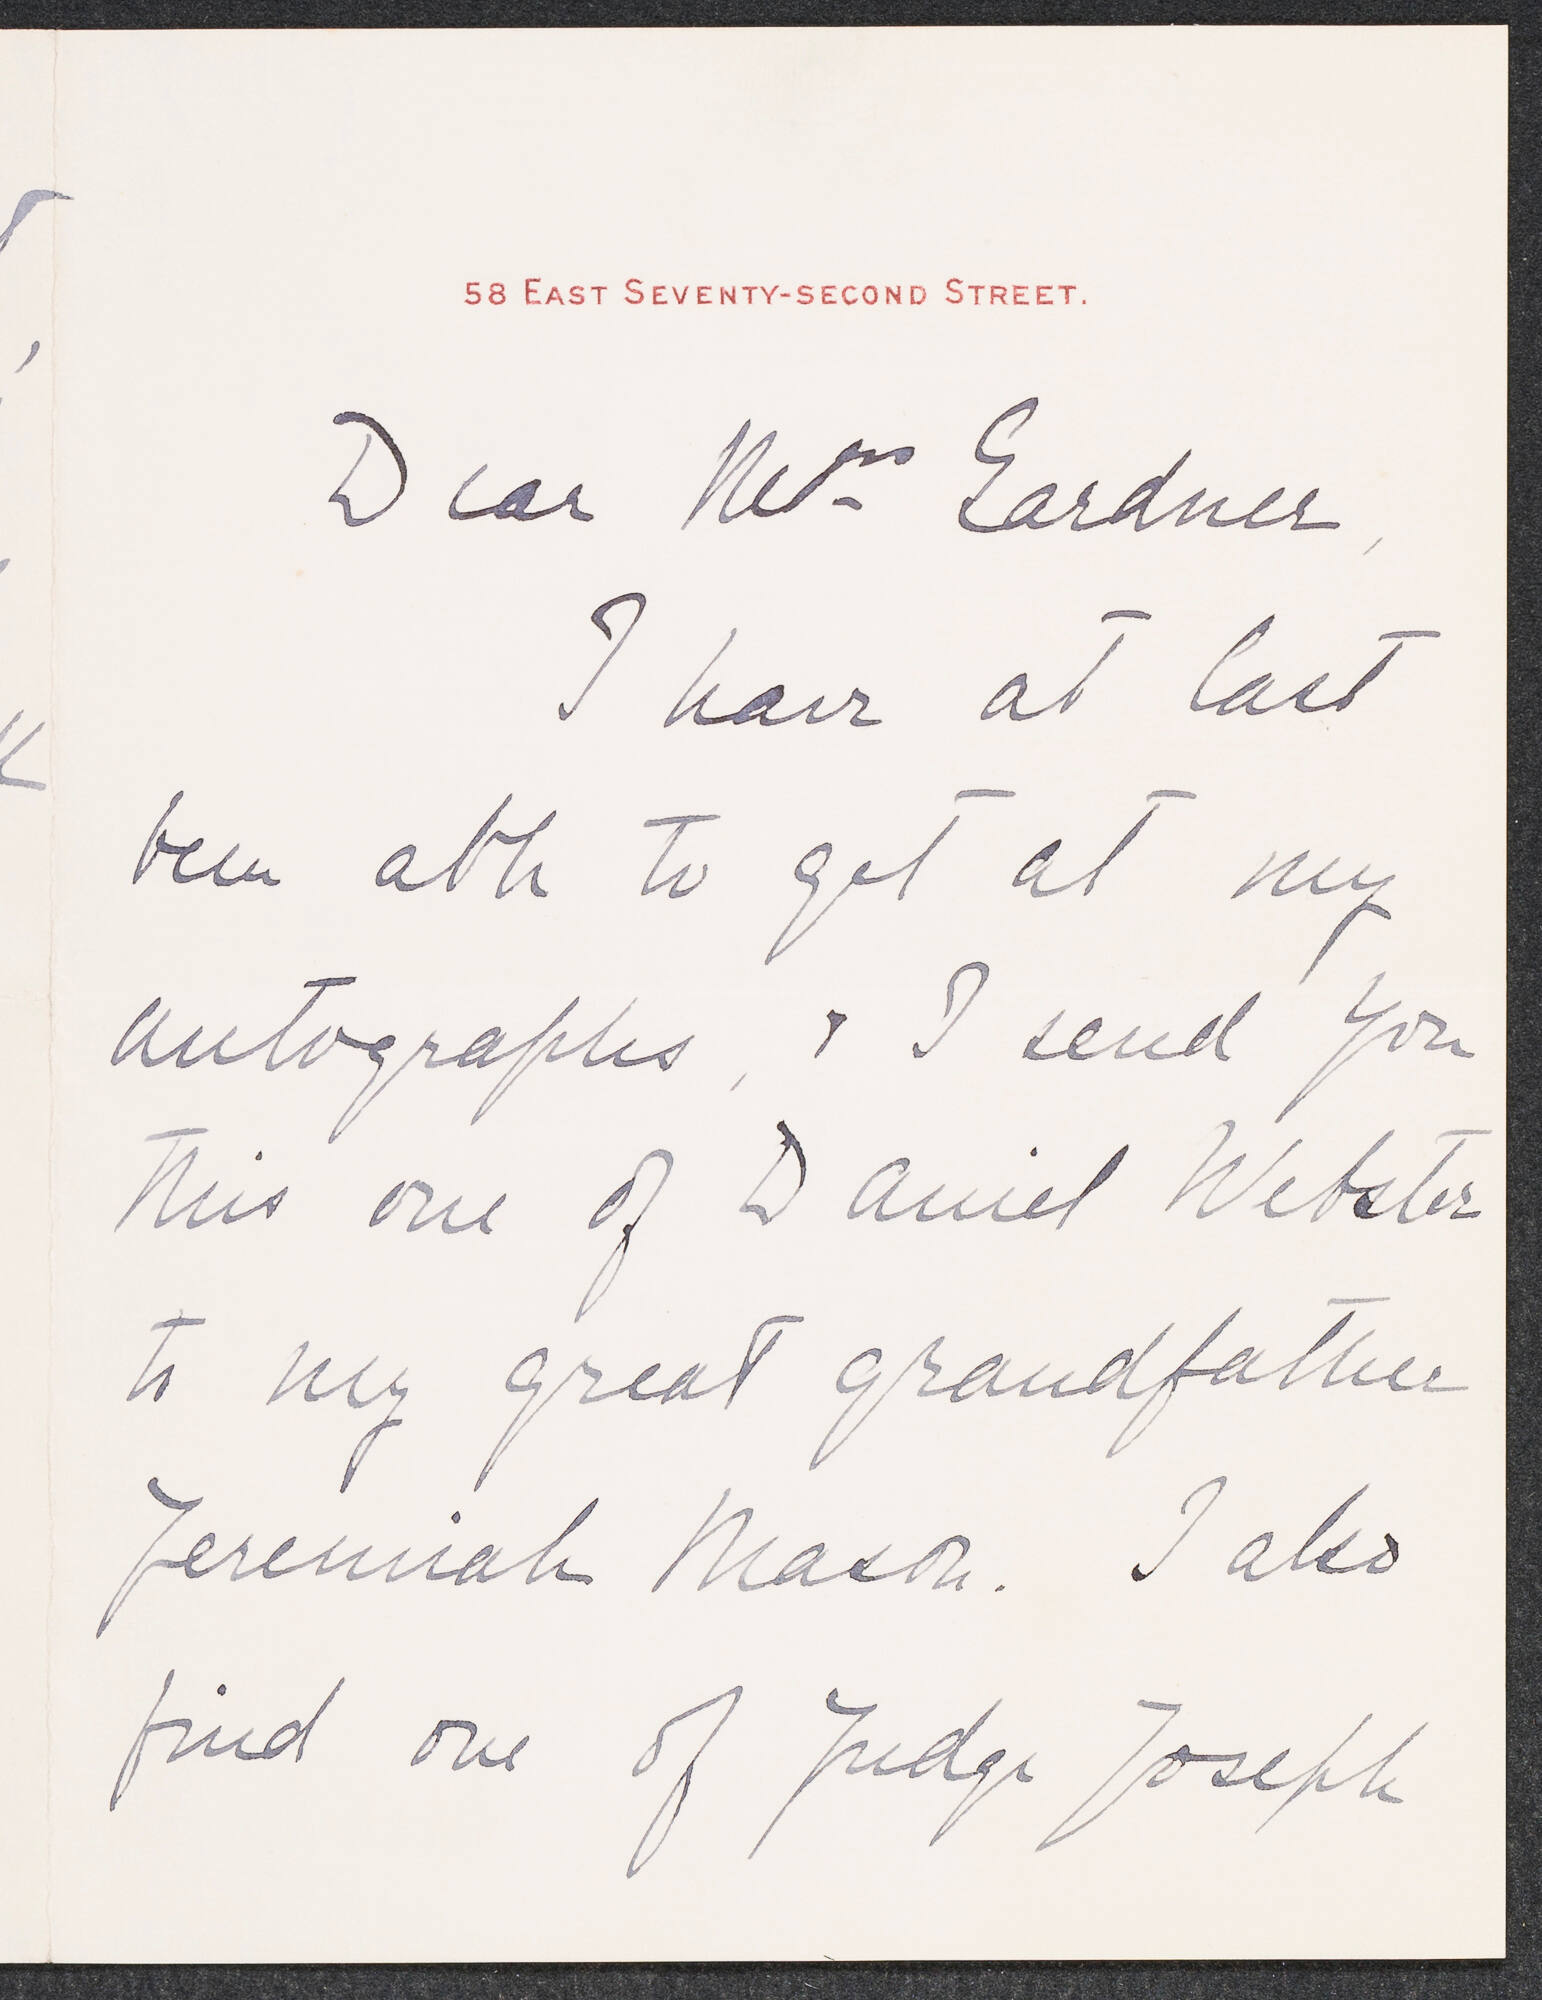 58 East Seventy-second Street.
Dear Mrs Gardner,
I have at last
been able to get at my
autographs, + I send you
this one of Daniel Webster
to my great grandfather
Jeremiah Mason. I also
find one of Judge Joseph